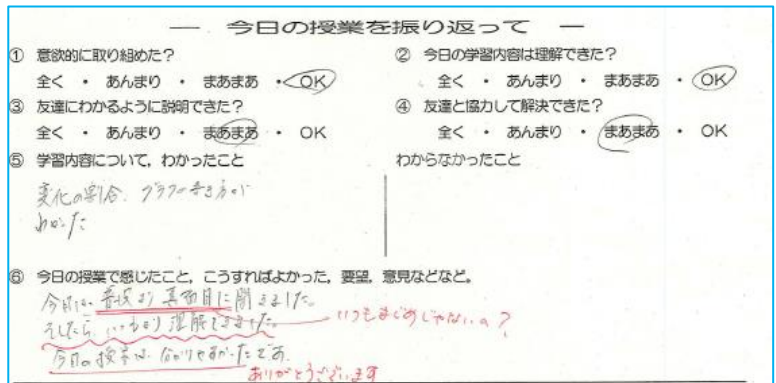 ― 今日の授業を振り返って ―
① 意欲的に取り組めた?
全く ・ あんまり ・ まあまあ ・ OK
② 今日の学習内容は理解できた?
全く ・ あんまり ・ まあまあ ・ OK
③ 友達にわかるように説明できた?
全く ・ あんまり ・ まあまあ ・ OK
④ 友達と協力して解決できた?
全く ・ あんまり ・ まあまあ ・ OK
⑤ 学習内容について,わかったこと
わからなかったこと
変化の割合、グラフの書き方が
わかった
⑥ 今日の授業で感じたこと,こうすればよかった,要望,意見などなど。
今日は、普段より真面目に聞きました。
そしたら、いつもより理解できました。
いつもまじめじゃないの?
今日の授業は、分かりやすかったです。
ありがとうございます